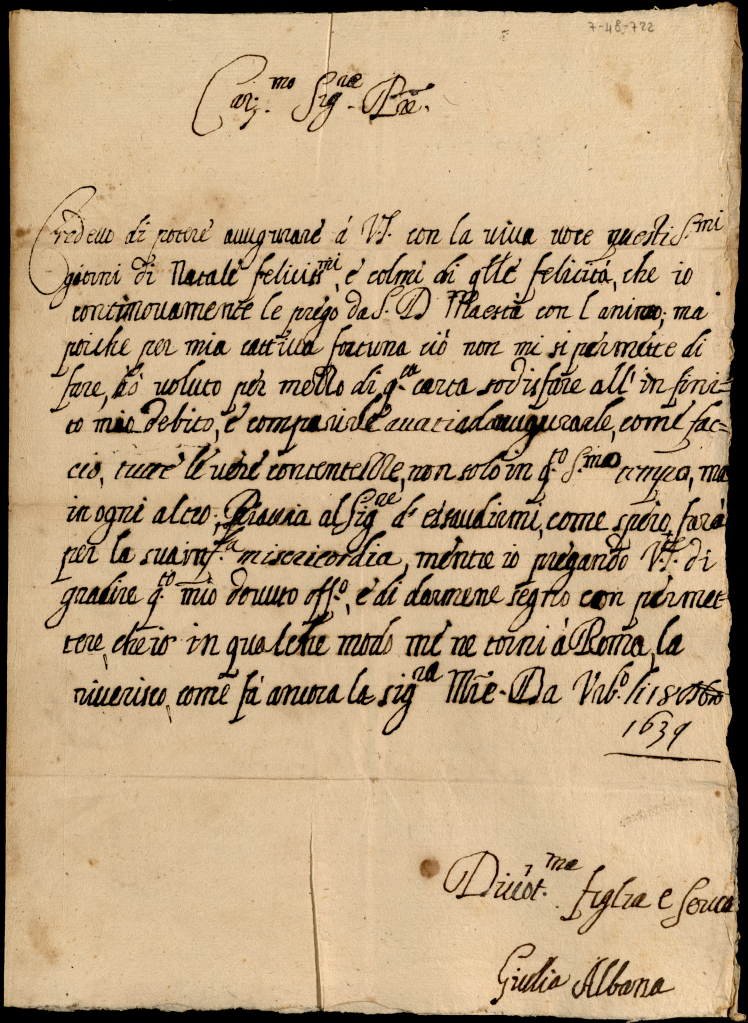 7-48-722
Car.mo Sig.re Pre.
Credevo di potere augurare á V.S. con la viva voce questi S.mi
giorni di Natale felicis.mi, e colmi di qlle felicità, che io
continovamente le prego da S. D. Maestà con l animo; ma
poiche per mia cattiva fortuna ciò non mi si permette di
fare, hò voluto per mezzo di q.ta carta sodisfare all' infini-
to mio debito, e comparirle avati ad augurarle, come fac-
cio, tutte le vere contentezze, non solo in q.to S.mo tempo, ma
in ogni altro; Piaccia al Sig.re d' essaudirmi, come spero, farà
per la sua inf.ta misericordia, mentre io pregando V.S. di
gradire q.to mio dovuto off.o, e di darmene segno con permet-
tere, che io in qualche modo me ne torni à Roma, la
riverisco, come fà ancora la sig.ra Mre. Da Urb.o li 18
1639
Divot.ma figlia e Serva
Giulia Albana